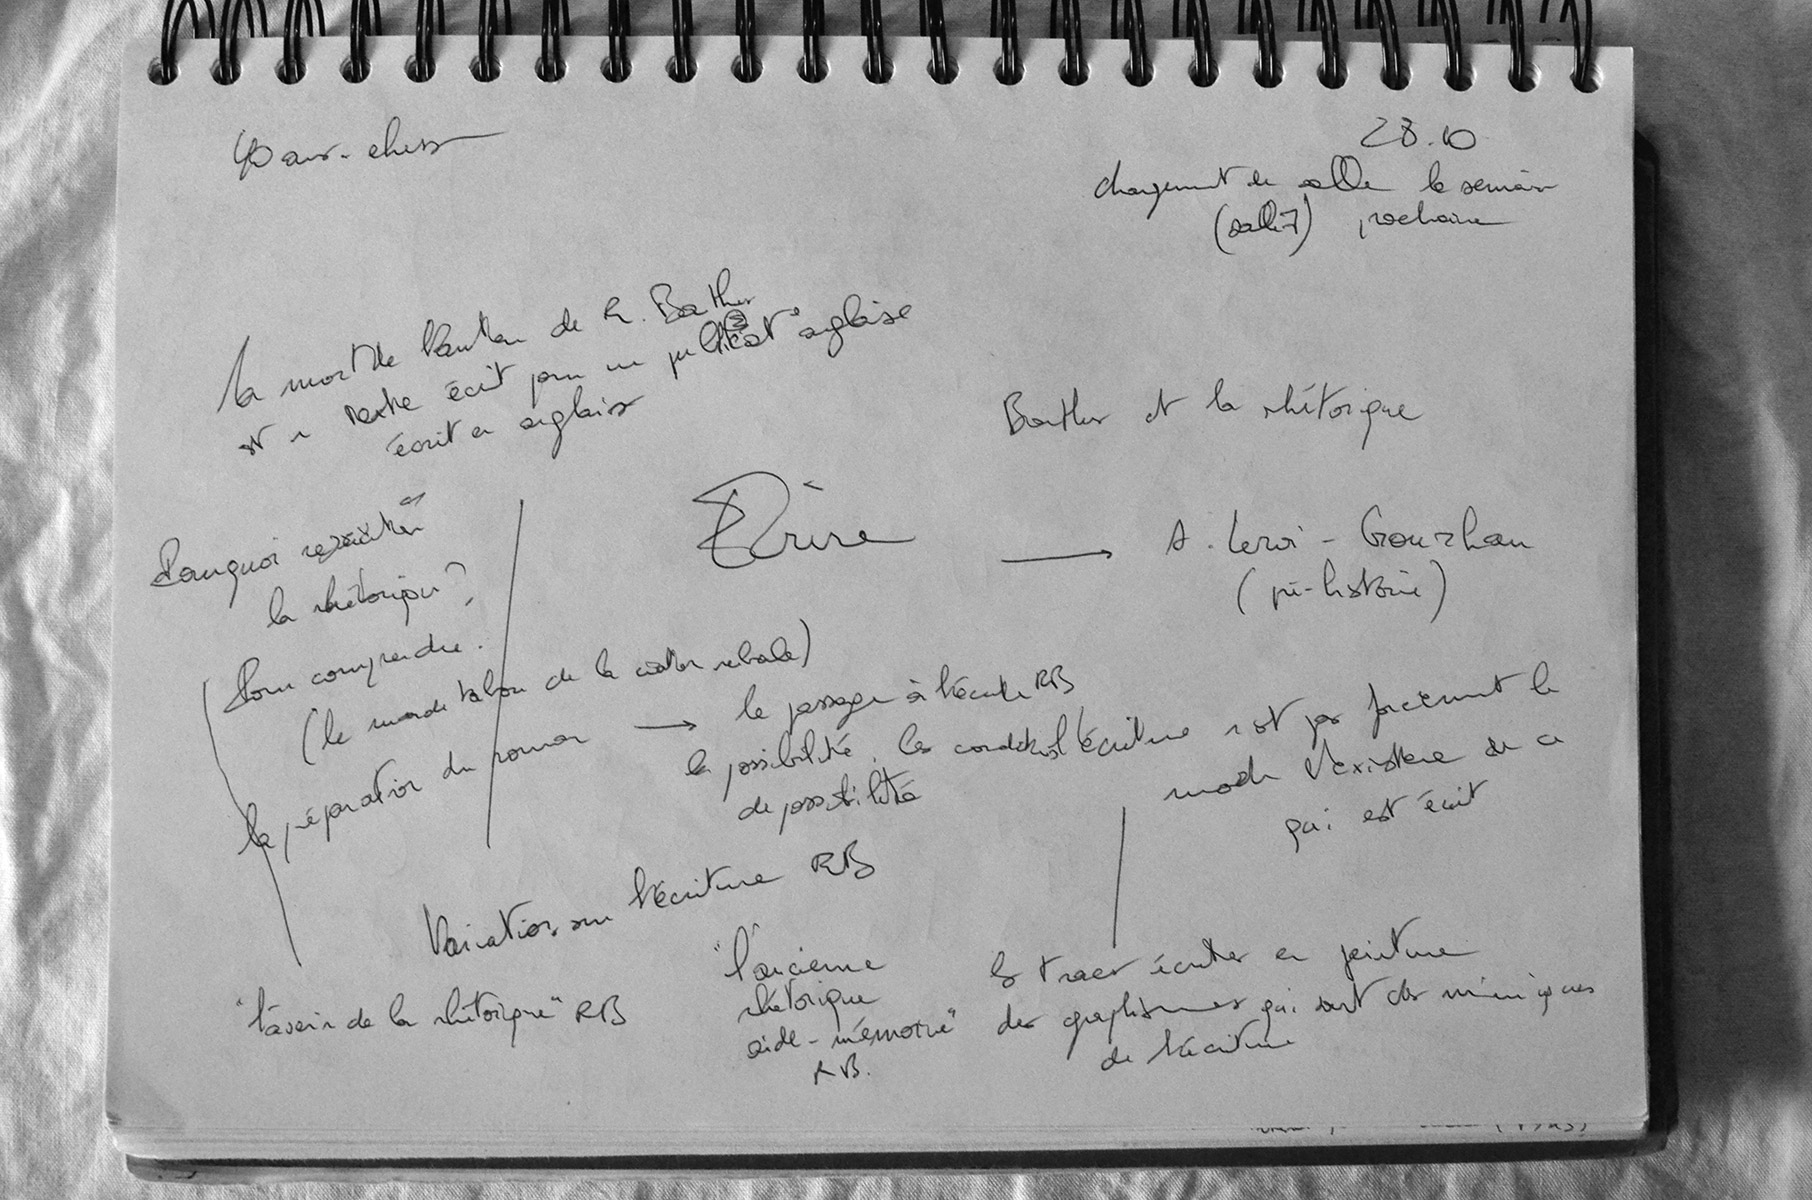 28.10
changement de salle la semaine
(salle 7) prochaine
la mort de l'auteur de R. Barthes
est un texte écrit pour une publicat° anglaise
écrit en anglais
Barthes et la rhétorique
Écrire
→ A. Leroi-Gourhan
(pré-histoire)
Pourquoi
la rhétorique?
Pour comprendre.
(le monde de la)
la préparation du roman → le passage à l'écriture RB
la possibilité, les condit° de possibilité
l'écriture n'est pas forcément le
mode d'existence de ce
qui est écrit
Variations sur l'écriture RB
"l'avenir de la rhétorique" RB
"l'ancienne
rhétorique
aide-mémoire"
RB.
en peinture
des graphismes qui sont des mimiques
de l'écriture